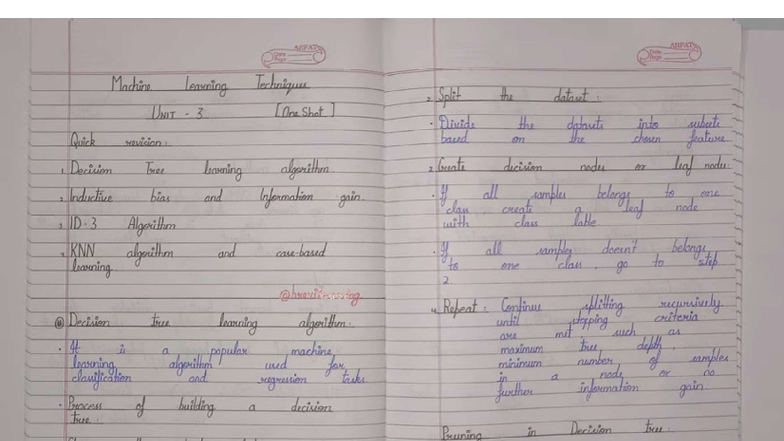 Machine Learning Techniques
UNIT - 3 [One Shot]
Quick revision:
1. Decision Tree learning algorithm.
2. Inductive bias and Information gain.
3. ID-3 Algorithm
4. KNN algorithm and case-based
learning.
Decision tree learning algorithm.
• It is a popular machine
learning algorithm used for
classification and regression tasks
• Process of building a decision
tree.
2. Split the dataset:
• Divide the datasets into subsets
based on the chosen feature
3. Create decision nodes or leaf nodes:
• If all samples belongs to one
class, create a leaf node
with class lable
• If all samples doesn't belongs
to one class, go to step
2
4. Repeat: Continue splitting recursively
until stopping criteria
are met such as
maximum tree depth,
minimum number of samples
in a node or no
further information gain
Pruning in Decision tree: